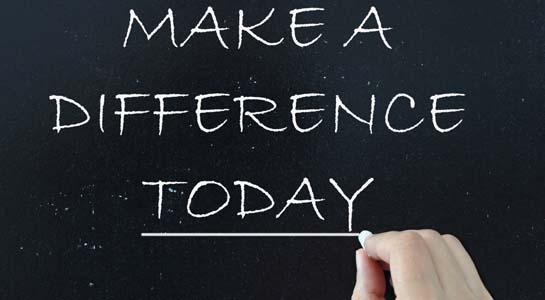 MAKE A
DIFFERENCE
TODAY